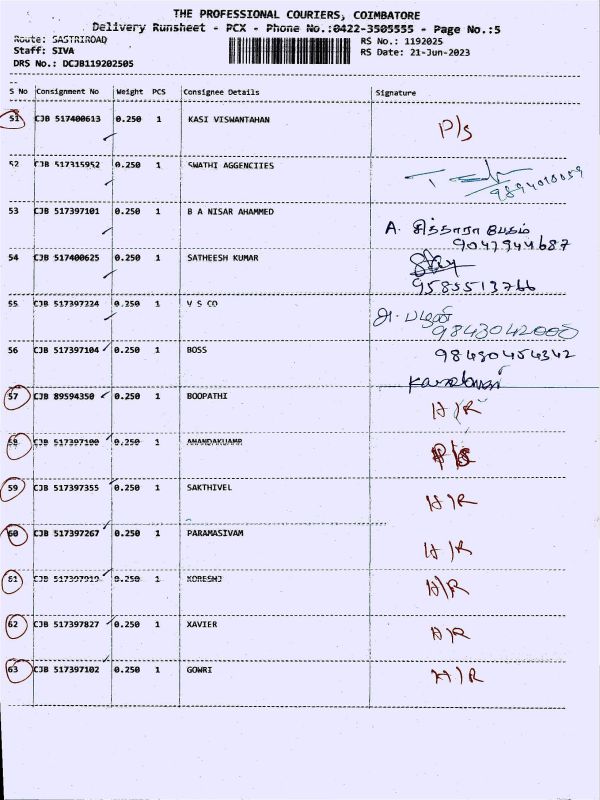 THE PROFESSIONAL COURIERS, COIMBATORE
Delivery Runsheet - PCX - Phone No.:0422-3505555 - Page No.:5
Route: SASTRIROAD RS No.: 1192025
Staff: SIVA RS Date: 21-Jun-2023
DRS No.: DCJB119202505
S No Consignment No Weight PCS Consignee Details Signature
51 CJB 517400613 0.250 1 KASI VISWANTAHAN P/s
52 CJB 517315952 0.250 1 SWATHI AGGENCIIES
9894010059
53 CJB 517397101 0.250 1 B A NISAR AHAMMED
A. சித்தாரா பேகம்
9047944687
54 CJB 517400625 0.250 1 SATHEESH KUMAR
9585513766
55 CJB 517397224 0.250 1 V S CO
9843042000
56 CJB 517397104 0.250 1 BOSS
57 CJB 89594350 0.250 1 BOOPATHI H/R
58 CJB 517397100 0.250 1 ANANDAKUAMR P/S
59 CJB 517397355 0.250 1 SAKTHIVEL H/R
60 CJB 517397267 0.250 1 PARAMASIVAM H/R
61 CJB 517397919 0.250 1 KORESHJ H/R
62 CJB 517397827 0.250 1 XAVIER H/R
63 CJB 517397102 0.250 1 GOWRI H/R